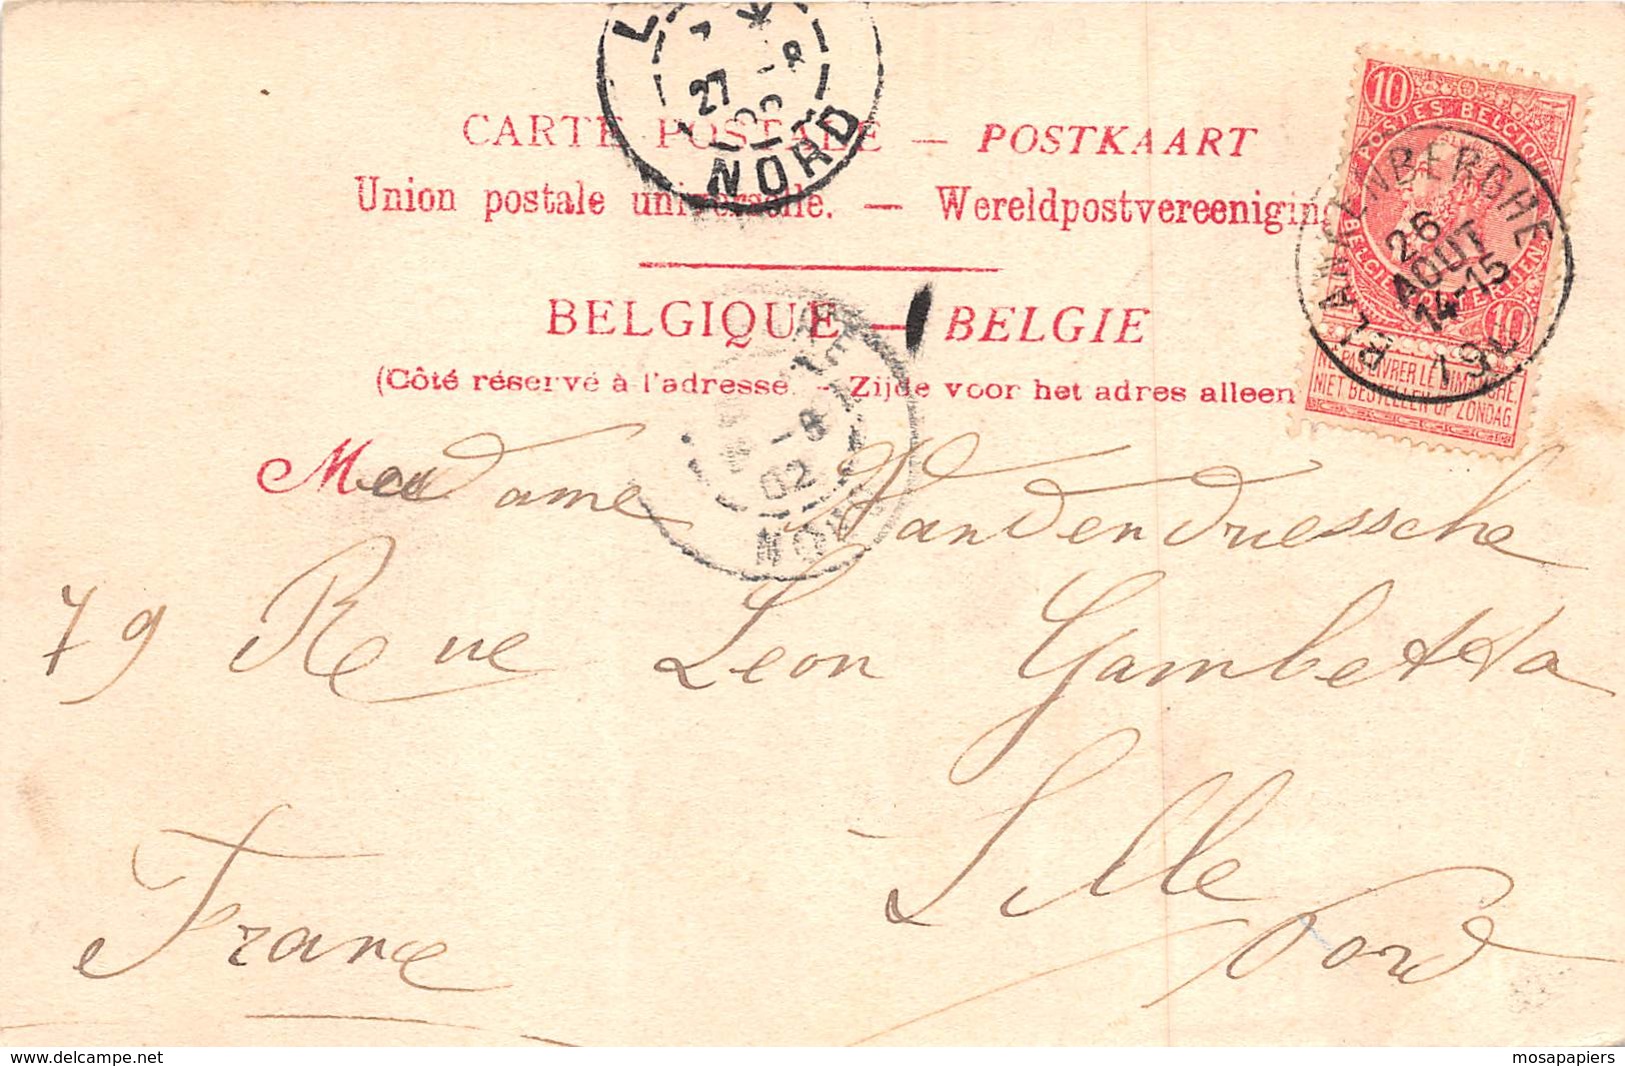 CARTE POSTALE — POSTKAART
Union postale universelle. — Wereldpostvereeniging
BELGIQUE — BELGIE
(Côté réservé à l'adresse. — Zijde voor het adres alleen
27 -8
NORD
10
POSTES BELGIQUE
10
NE PAS LIVRER LE DIMANCHE.
NIET BESTELLEN OP ZONDAG.
BLANKENBERGHE
26
AOUT
14-15
190
-8
02
NORD
Madame Vandendriessche
79 Rue Leon Gambetta
Lille
France Nord
mosapapiers - www.delcampe.net